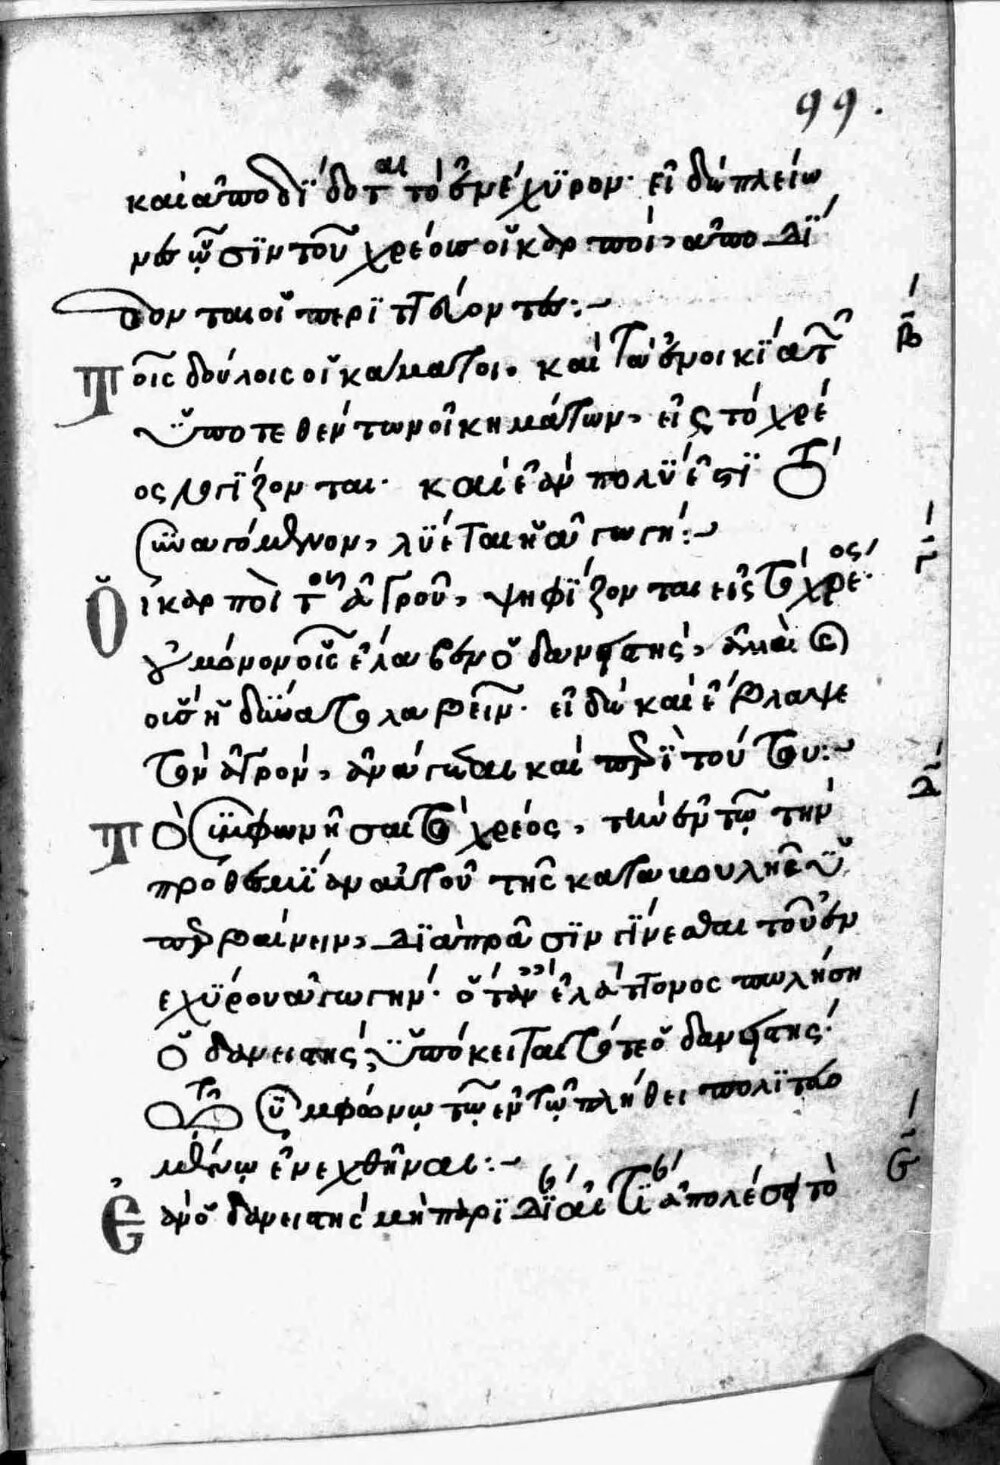 99.
καὶ ἀποδίδοται τὸ ἐνέχυρον· εἰ δὲ πλείω
νες ὦσιν τοῦ χρέους οἱ καρποὶ, ἀποδί
δονται οἱ περιττεύοντες:~
β
Τοῖς δούλοις οἱ κάματοι, καὶ τὰ ἐνοίκια τῶν
ὑποτεθέντων οἰκημάτων, εἰς τὸ χρέ
ος λογίζονται. καὶ ἐὰν πολύ ἐστι τὸ
συναγόμενον, λύεται ἡ ἀγωγή:~
γ
Οἱ καρποὶ τοῦ ἀγροῦ, ψηφίζονται εἰς τὸ χρέος.
οὐ μόνον οὓς ἔλαβεν ὁ δανειστής, ἀλλὰ καὶ
οὓς ἠδύνατο λαβεῖν. εἰ δὲ καὶ ἔβλαψε
τὸν ἀγρὸν, ἀνάγεται καὶ περὶ τούτου:~
δ
Τὸ συμφωνῆσαι τὸ χρέος, τινὰ ἐν τῷ τὴν
προθεσμίαν αὐτοῦ τῆς καταβουλῆς ὑ
περβαίνειν, διάπρασιν γίνεσθαι τοῦ ἐν
εχύρου ἀγωγήν. ὅταν ἐλάττονος πωλήσῃ
ὁ δανειστής, ὑπόκειται τότε ὁ δανειστής
τῷ συμφώνῳ τῷ ἐν τῷ πλήθει πολιτευο
μένῳ ἐνεχθῆναι:~
ε
Ἐὰν ὁ δανειστὴς μὴ περὶ ἀπολέσῃ τὸ